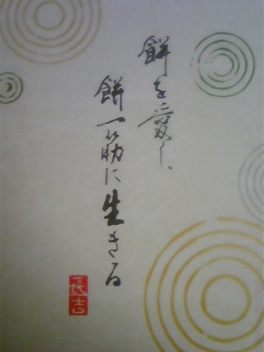 餅を愛し、
餅一筋に生きる